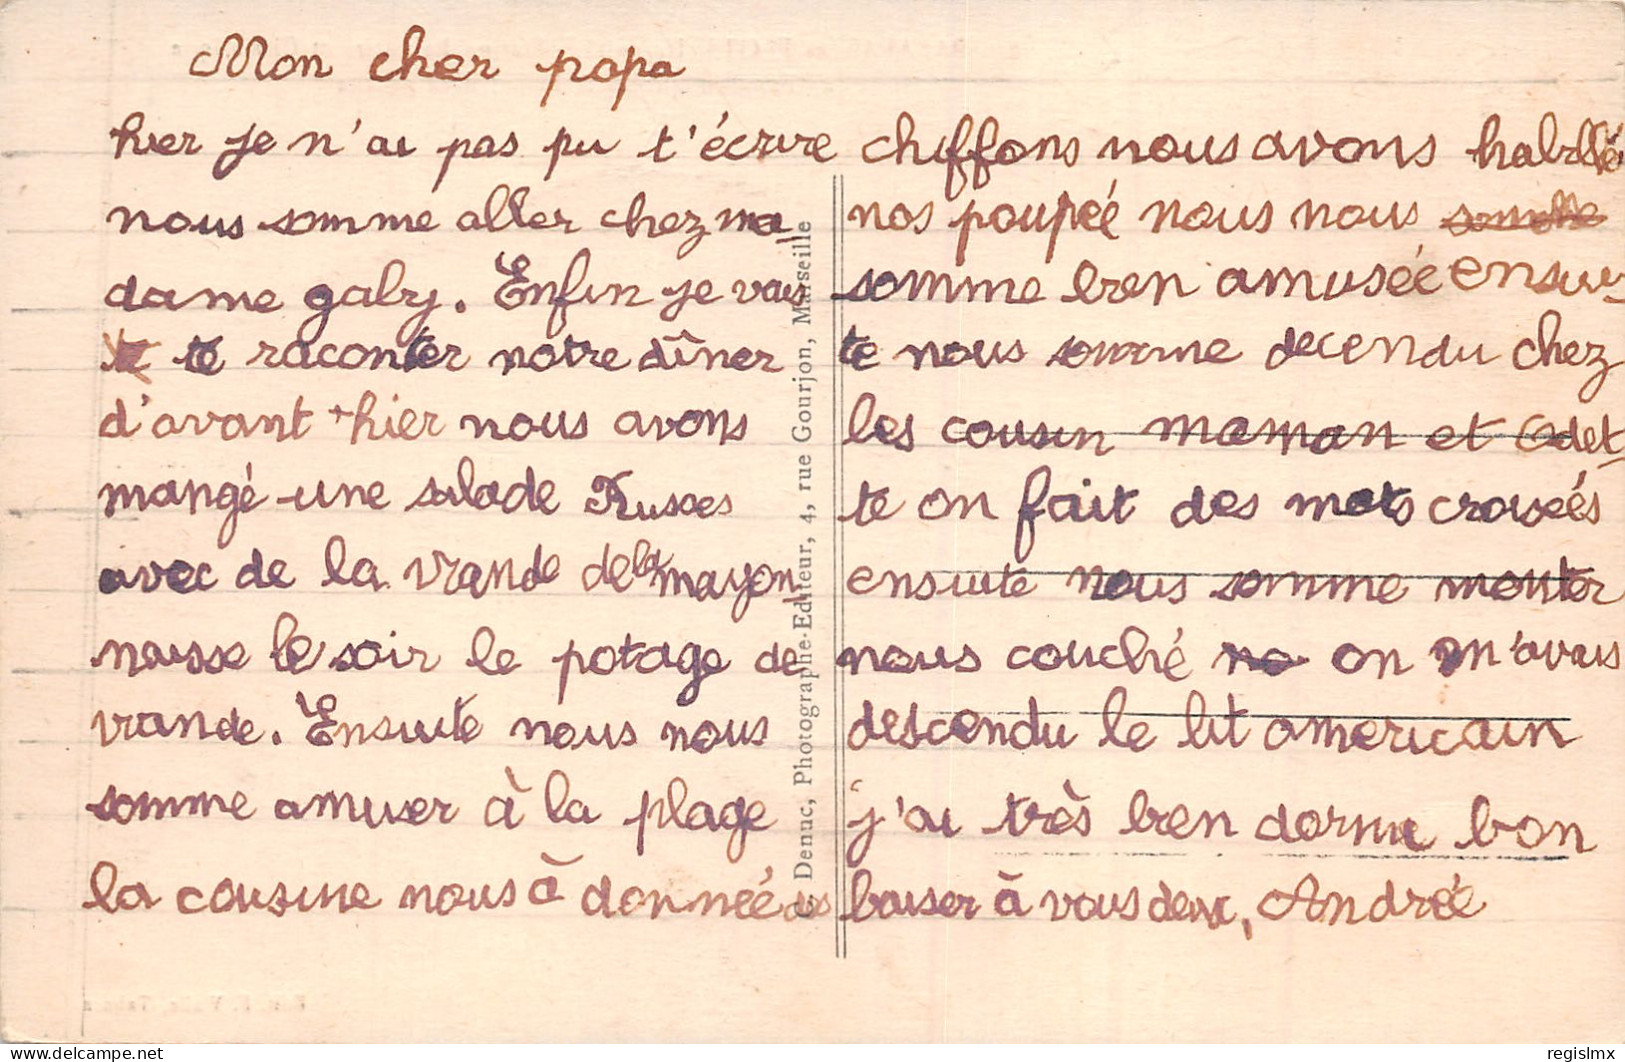 Mon cher papa
hier je n'ai pas pu t'écrire
nous somme aller chez ma-
dame gaby. Enfin je vais
te raconter notre dîner
d'avant-hier nous avons
mangé une salade Russes
avec de la viande de la mayon
naisse le soir le potage de
viande. Ensuite nous nous
somme amuser à la plage
la cousine nous à donnée des
chiffons nous avons habillé
nos poupée nous nous somme
somme bien amusée ensui-
te nous somme decendu chez
les cousin maman et Odet-
te on fait des mots croiseés
ensuite nous somme monter
nous couché no on m'avais
descendu le lit americain
j'ai très bien dormi bon
baiser à vous deux, Andrée
Denuc, Photographe-Editeur, 4, rue Gourjon, Marseille
delcampe.net
regislmx